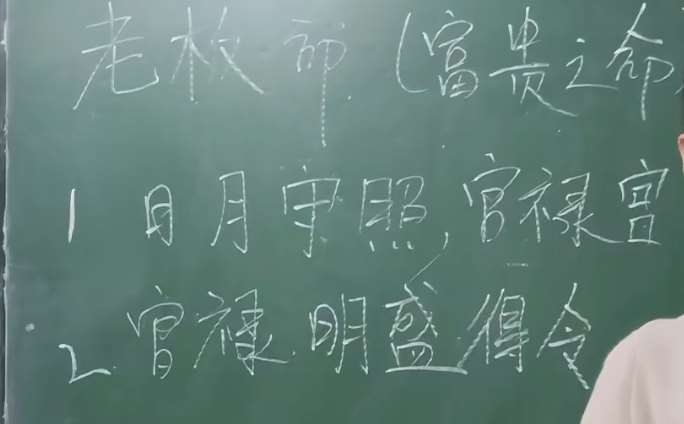 老板命(富贵之命
1 日月守照,官禄宫
2.官禄.明盛得令